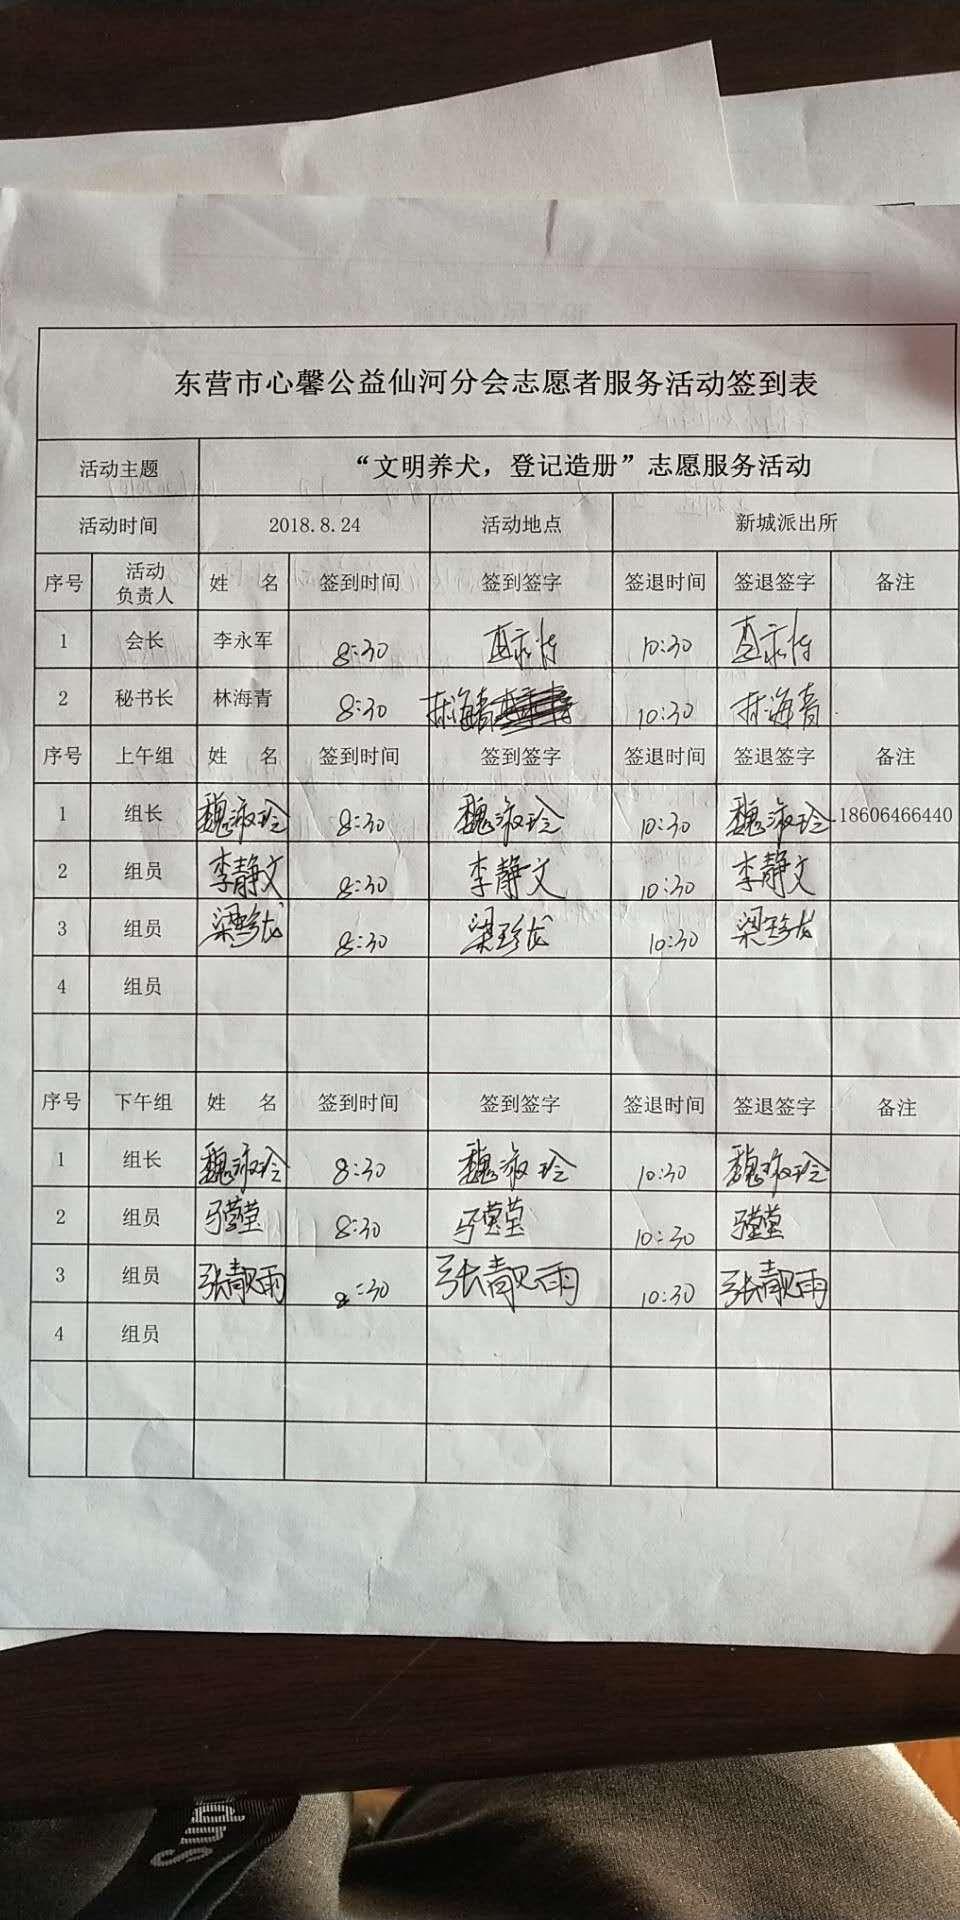 东营市心馨公益仙河分会志愿者服务活动签到表
活动主题 “文明养犬，登记造册”志愿服务活动
活动时间 2018.8.24 活动地点 新城派出所
序号 活动负责人 姓 名 签到时间 签到签字 签退时间 签退签字 备注
1 会长 李永军 8:30 10:30
2 秘书长 林海青 8:30 林海青 10:30 林海青
序号 上午组 姓 名 签到时间 签到签字 签退时间 签退签字 备注
1 组长 魏淑玲 8:30 魏淑玲 10:30 魏淑玲 18606466440
2 组员 李静文 8:30 李静文 10:30 李静文
3 组员 梁珍龙 8:30 梁珍龙 10:30 梁珍龙
4 组员
序号 下午组 姓 名 签到时间 签到签字 签退时间 签退签字 备注
1 组长 魏淑玲 8:30 魏淑玲 10:30 魏淑玲
2 组员 马莹莹 8:30 马莹莹 10:30 马莹莹
3 组员 张靓雨 8:30 张靓雨 10:30 张靓雨
4 组员